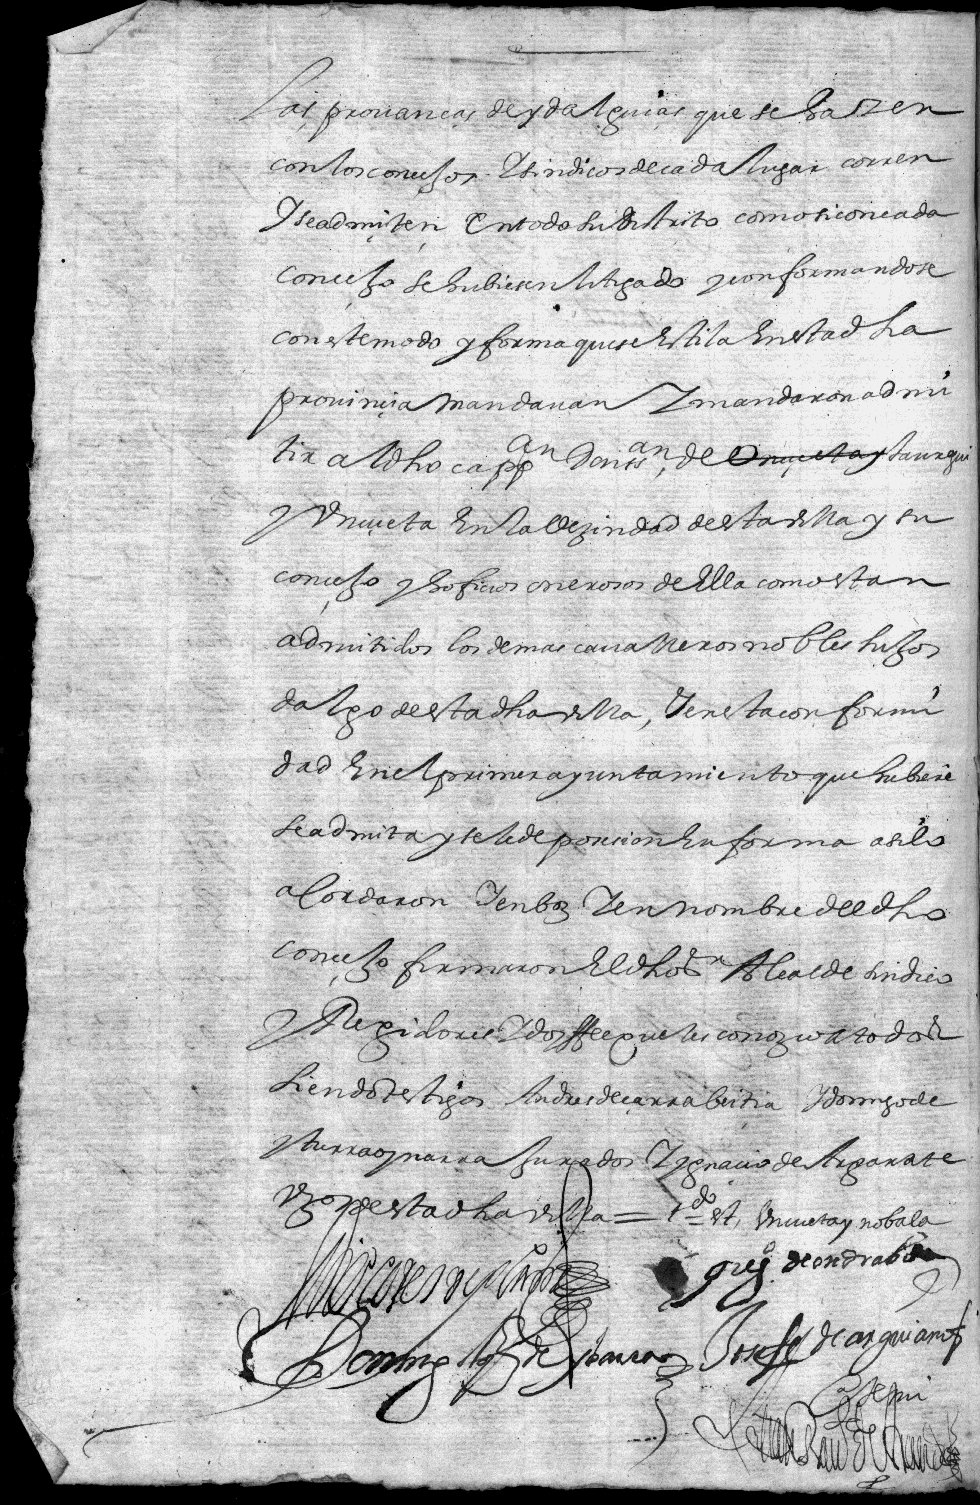 Las prouancas de ydalguias que se haszen
con los concejos Y sindicos de cada lugar corren
Y se admiten En todo su distrito como si con cada
concejo se hubiesen litigado y conformandose
con este modo y forma que se Estila En esta dha
prouinçia mandauan Y mandaron admi
tir al dho cappan Juan de Onuçeta y saurgui
y Vnçueta En la Vezindad de esta villa y su
conçejo y hoficios onerosos de Ella como estan
admitidos los demas caualleros nobles hijos
dalgo de esta dha villa, Y en esta conformi
dad En el primer ayuntamiento que hubiere
se admita y se le de posesion En forma asi lo
acordaron Y en boz Y en nombre del dho
conçejo firmaron El dho sr Alcalde sindico
y Regidores Y doy ffee que les conozco a todos
siendo testigos Andres de çarrabeitia Y domingo de
yturraoynarra Jurados Y ygnacio de Argarate
vzo de esta dha villa = tdo est, Vnçueta y no bala
greg.o de ondrabia
Domingo de Ybarra Joseph de anguiano
Ante mi